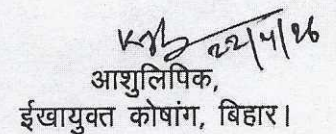 22/4/26
आशुलिपिक,
ईखायुक्त कोषांग, बिहार।